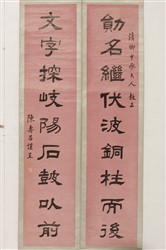 清卿中丞大人教正
勛名繼伏波銅柱而後
文字探岐陽石鼓以前
陳壽昌謹呈